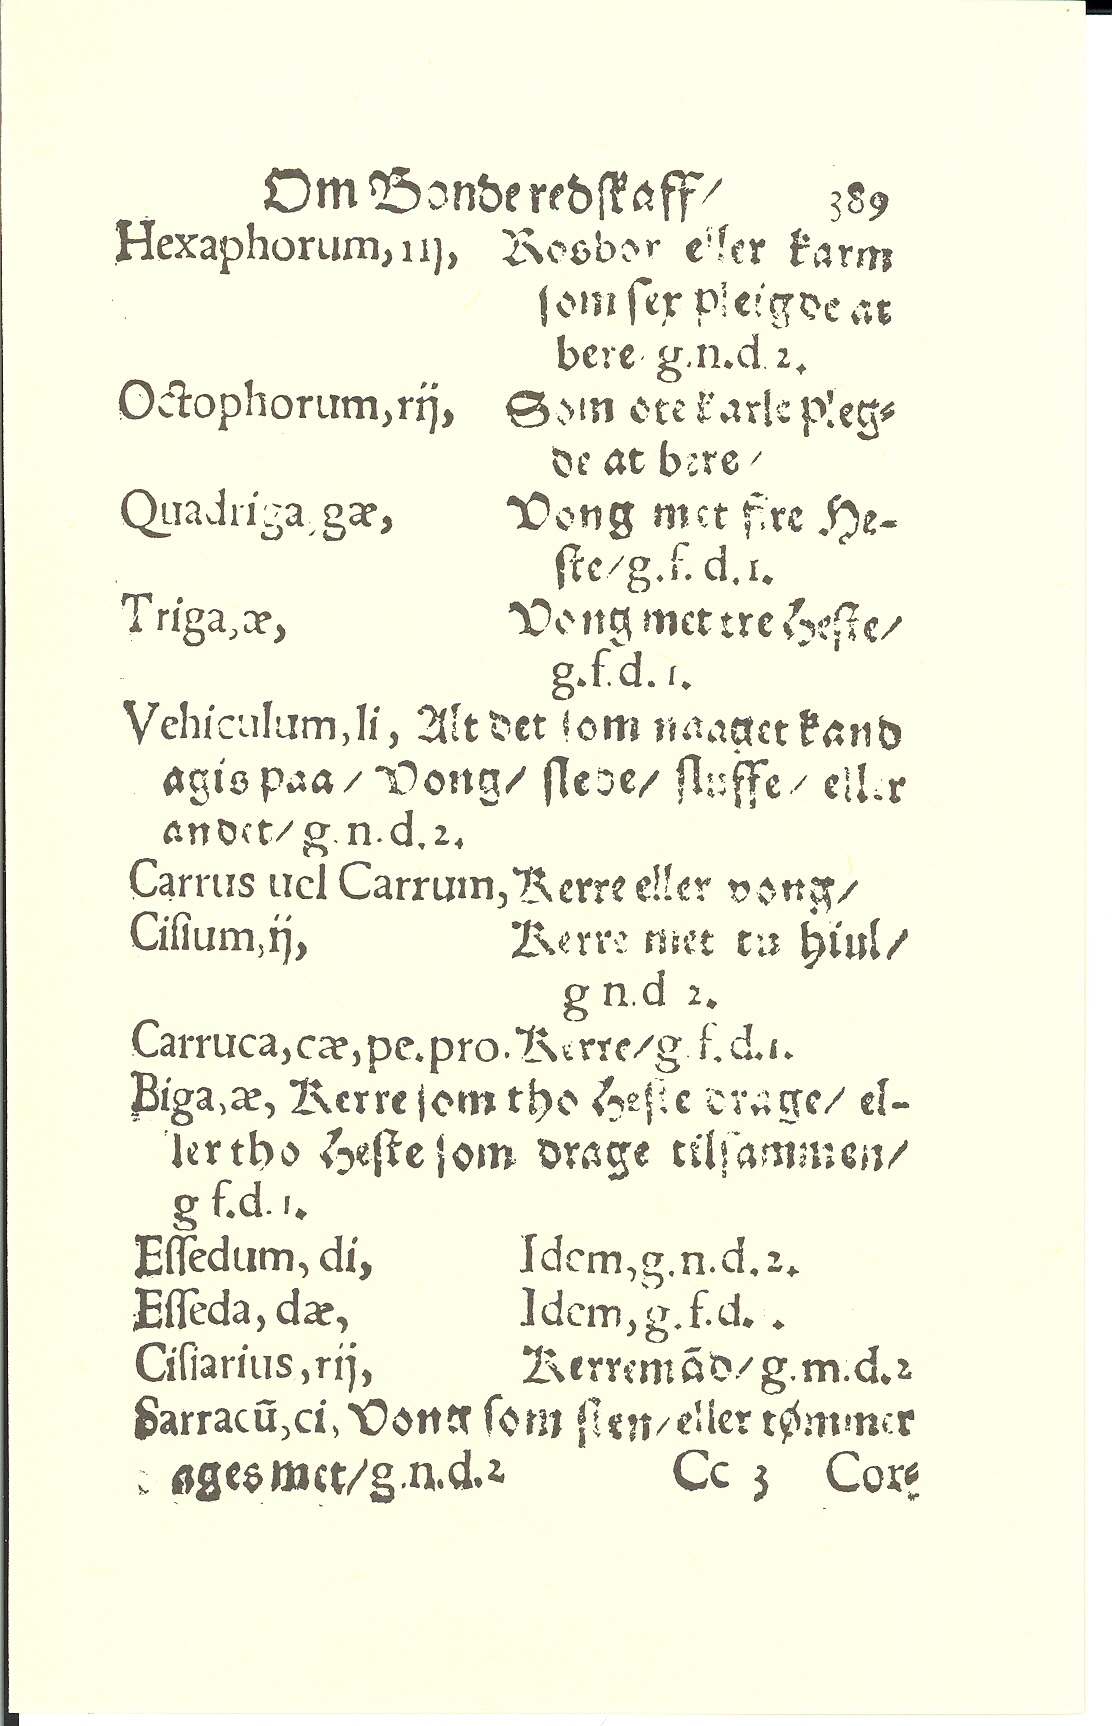 Om Bonde redſkaff/ 389
Hexaphorum, iij, Rosbor eller karm
ſom ſex pleigde at
bere g.n.d.2.
Octophorum, rij, Som ote karle pleg⸗
de at bere/
Quadriga, gæ, Vong met fire He-
ſte/g.f.d.1.
Triga, æ, Vong met tre Heſte/
g.f.d.1.
Vehiculum, li, Alt det ſom naaget kand
agis paa/ Vong/ ſlede/ ſluffe/ eller
andet/ g.n.d.2.
Carrus uel Carrum, Kerre eller vong/
Ciſium, ij, Kerre met tu hiul/
g n.d 2.
Carruca, cæ, pe.pro. Kerre/g.f.d.1.
Biga, æ, Kerre ſom tho Heſte drage/ el-
ler tho Heſte ſom drage tilſammen/
g f.d.1.
Eſſedum, di, Idem, g.n.d.2.
Eſſeda, dæ, Idem, g.f.d. .
Ciſiarius, rij, Kerremād/ g.m.d.2
Sarracū, ci, Vong ſom ſten/ eller tømmer
ages met/g.n.d.2 Cc 3 Cor⸗